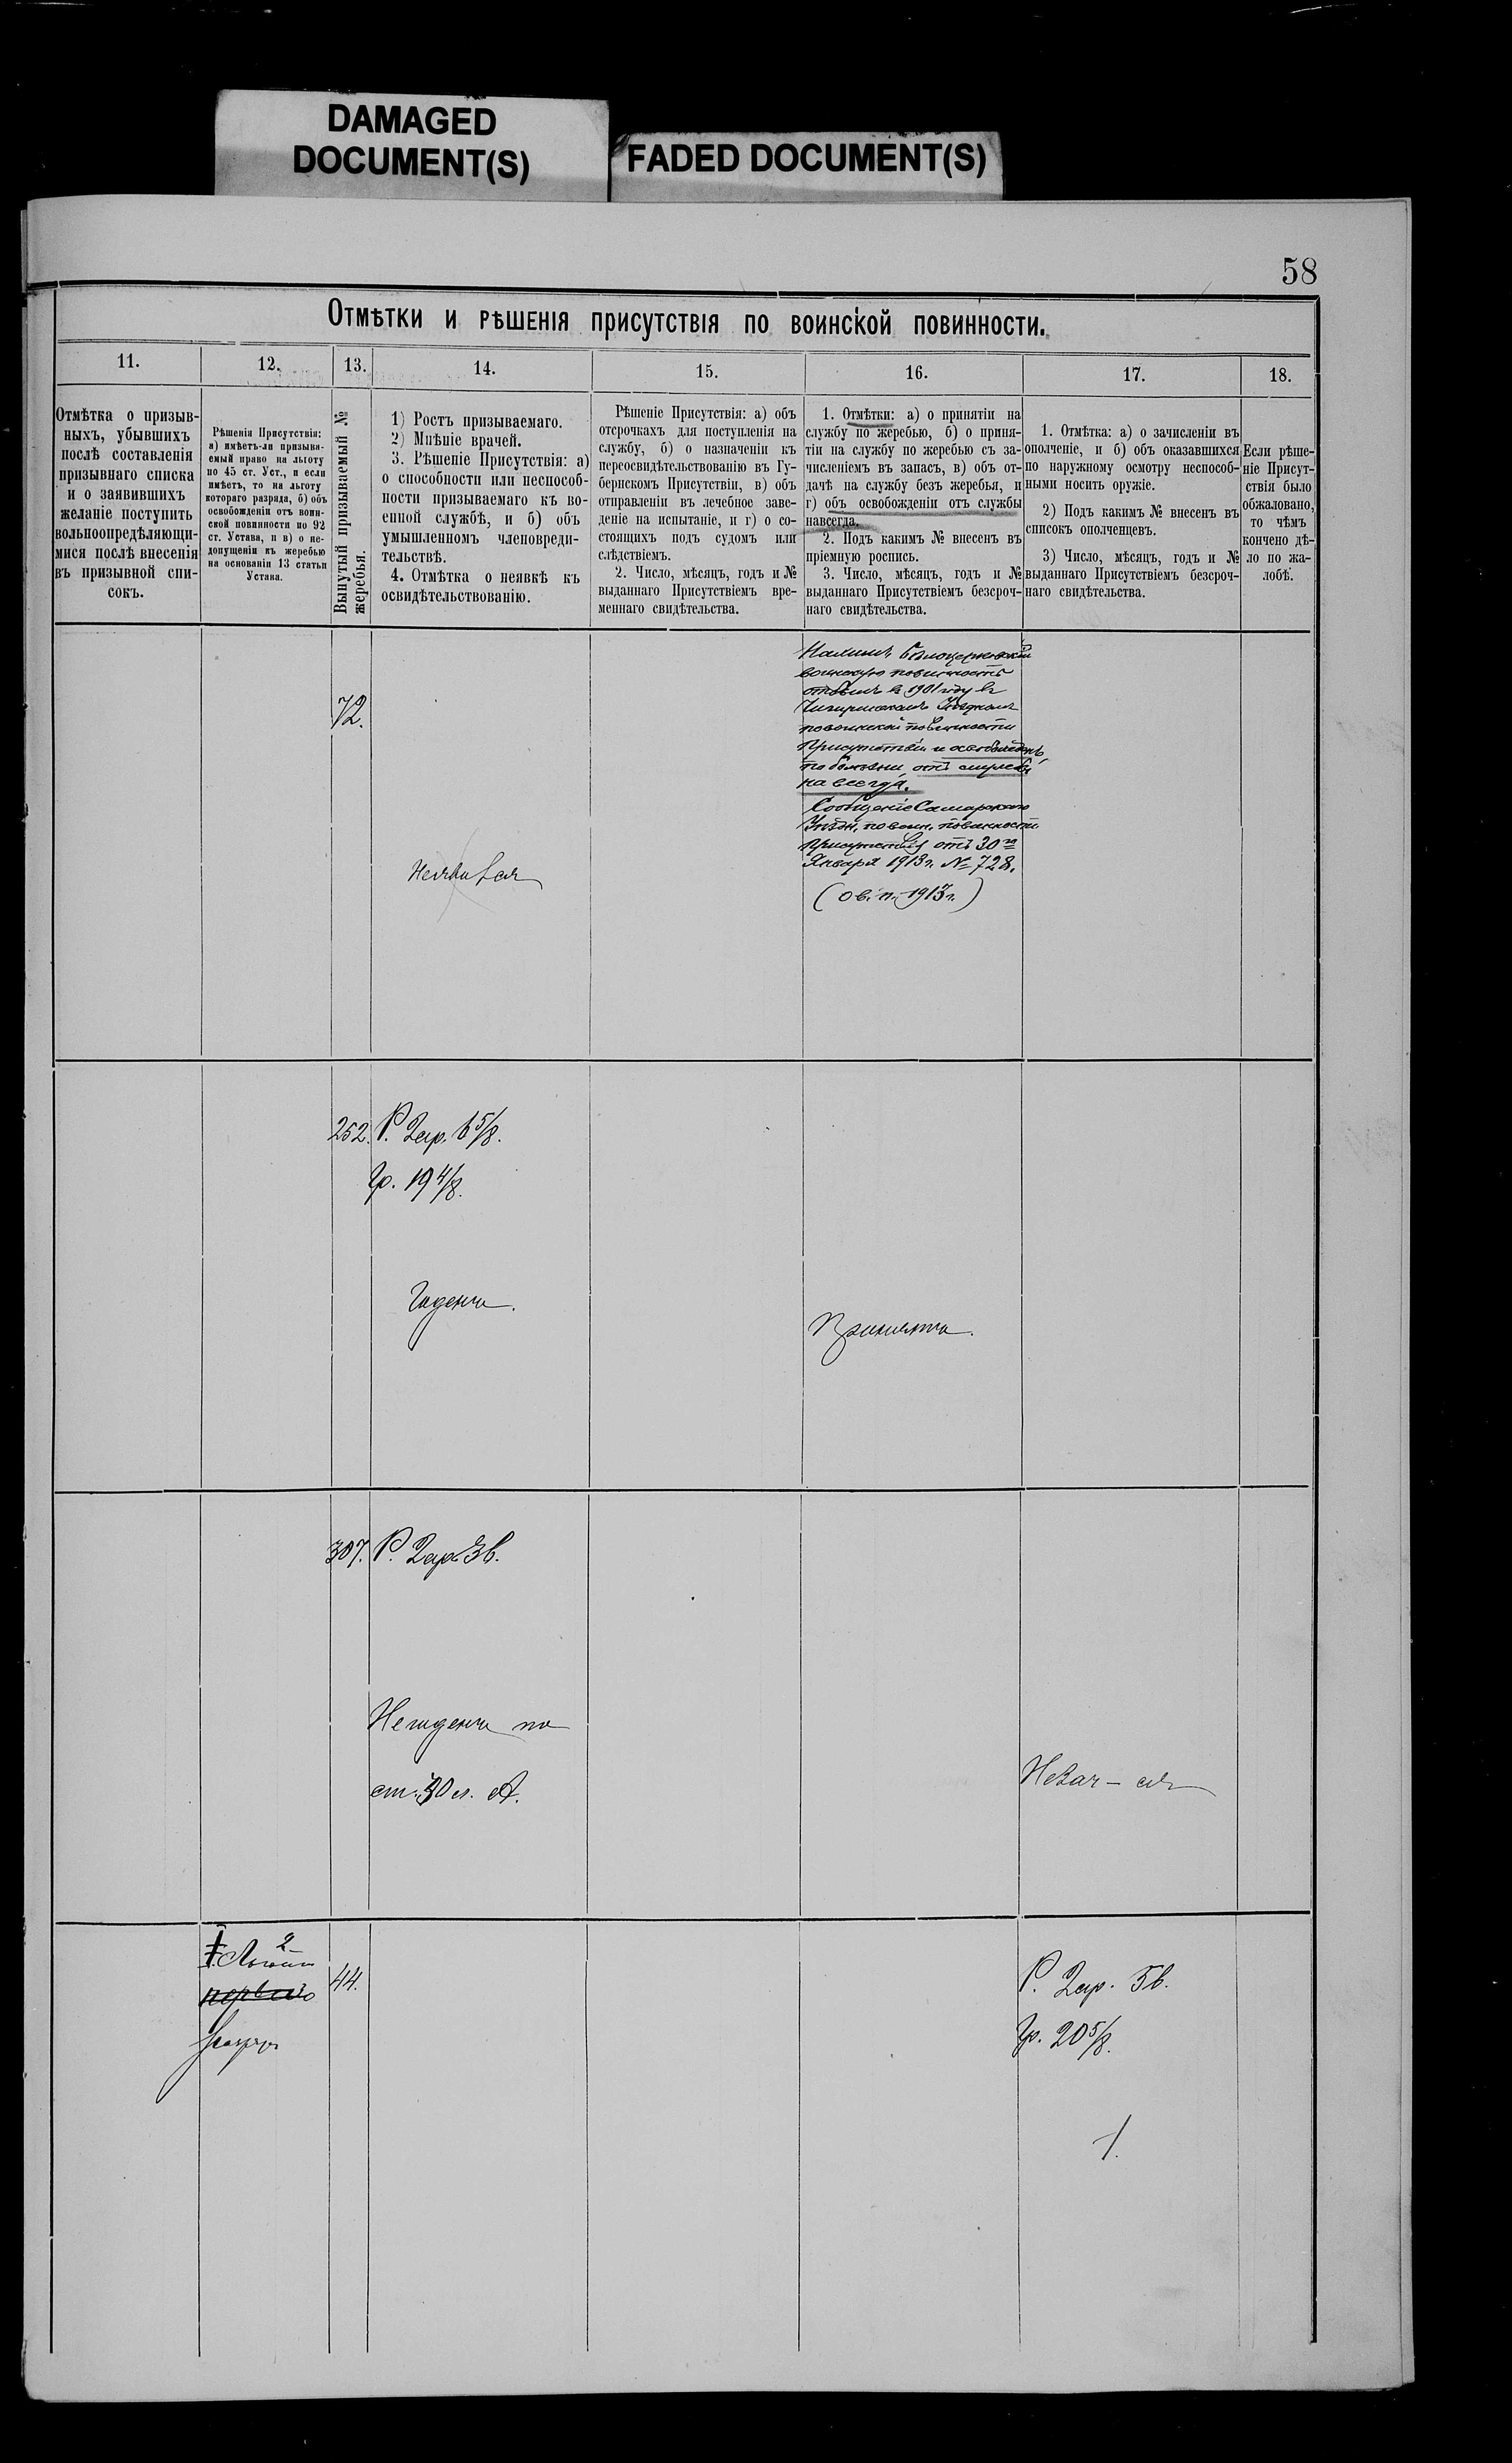 DAMAGED
DOCUMENT(S)
FADED DOCUMENT(S)
58
Отмѣтки и рѣшенія присутствія по воинской повинности.
11.
12.
13.
14.
15.
16.
17.
18.
Отмѣтка о призыв-
ныхъ, убывшихъ
послѣ составленія
призывнаго списка
и о заявившихъ
желаніе поступить
вольноопредѣляющи-
мися послѣ внесенія
въ призывной спи-
сокъ.
Рѣшенія Присутствія:
а) имѣетъ-ли призыва-
емый право на льготу
по 45 ст. Уст., и если
имѣетъ, то на льготу
котораго разряда, б) объ
освобожденіи отъ воин-
ской повинности по 92
ст. Устава, и в) о не-
допущеніи къ жеребью
на основаніи 13 статьи
Устава.
Вынутый призываемый №
жеребья.
1) Ростъ призываемаго.
2) Мнѣніе врачей.
3. Рѣшеніе Присутствія: а)
о способности или неспособ-
ности призываемаго къ во-
енной службѣ, и б) объ
умышленномъ членовреди-
тельствѣ.
4. Отмѣтка о неявкѣ къ
освидѣтельствованію.
Рѣшеніе Присутствія: а) объ
отсрочкахъ для поступленія на
службу, б) о назначеніи къ
переосвидѣтельствованію въ Гу-
бернскомъ Присутствіи, в) объ
отправленіи въ лечебное заве-
деніе на испытаніе, и г) о со-
стоящихъ подъ судомъ или
слѣдствіемъ.
2. Число, мѣсяцъ, годъ и №
выданнаго Присутствіемъ вре-
меннаго свидѣтельства.
1. Отмѣтки: а) о принятіи на
службу по жеребью, б) о приня-
тіи на службу по жеребью съ за-
численіемъ въ запасъ, в) объ от-
дачѣ на службу безъ жеребья, и
г) объ освобожденіи отъ службы
навсегда.
2. Подъ какимъ № внесенъ въ
пріемную роспись.
3. Число, мѣсяцъ, годъ и №
выданнаго Присутствіемъ безсроч-
наго свидѣтельства.
1. Отмѣтка: а) о зачисленіи въ
ополченіе, и б) объ оказавшихся
по наружному осмотру неспособ-
ными носить оружіе.
2) Подъ какимъ № внесенъ въ
списокъ ополченцевъ.
3) Число, мѣсяцъ, годъ и №
выданнаго Присутствіемъ безсроч-
наго свидѣтельства.
Если рѣше-
ніе Присут-
ствія было
обжаловано,
то чѣмъ
кончено дѣ-
ло по жа-
лобѣ.
72.
Неявился
Бѣлоцерковскій
воинскую повинность
отбылъ въ 1901 году въ
Чигиринскомъ Уѣздномъ
по воинской повинности
Присутствіи и освобожденъ
по болѣзни отъ службы
на всегда.
Сообщеніе Самарскаго
Уѣздн. по воин. повинности
Присутствія отъ 30го
Января 1913 г. № 728.
(о в. п. 1913 г.)
252.
Р. 2 ар. 6 5/8.
Гр. 19 4/8.
Годенъ.
Принятъ.
307.
Р. 2 ар 3 в.
Негоденъ по
ст. 30 л. А.
44.
2
первого
Р. 2 ар. 5 в.
Гр. 20 5/8.